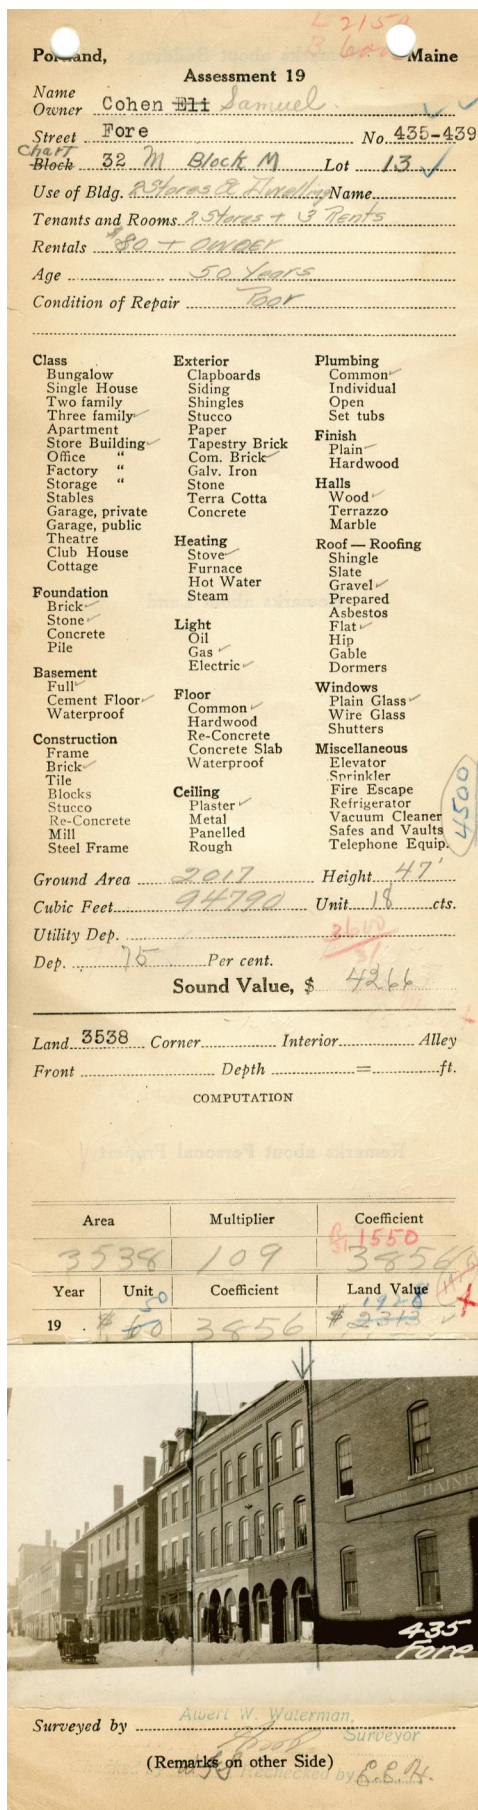 L 2150
B 600
Portland, Maine
Assessment 19
Name
Owner Cohen Eli Samuel.
Street Fore No. 435-439
Chart
Block 32 M Block M Lot 13
Use of Bldg. 2 Stores & Dwelling Name
Tenants and Rooms 2 Stores + 3 Rents
Rentals $80 + OWNER
Age 50 Years
Condition of Repair Poor
Class
Bungalow
Single House
Two family
Three family ✓
Apartment
Store Building ✓
Office "
Factory "
Storage "
Stables
Garage, private
Garage, public
Theatre
Club House
Cottage
Foundation
Brick ✓
Stone ✓
Concrete
Pile
Basement
Full ✓
Cement Floor ✓
Waterproof
Construction
Frame
Brick ✓
Tile
Blocks
Stucco
Re-Concrete
Mill
Steel Frame
Exterior
Clapboards
Siding
Shingles
Stucco
Paper
Tapestry Brick
Com. Brick ✓
Galv. Iron
Stone
Terra Cotta
Concrete
Heating
Stove ✓
Furnace
Hot Water
Steam
Light
Oil
Gas ✓
Electric ✓
Floor
Common ✓
Hardwood
Re-Concrete
Concrete Slab
Waterproof
Ceiling
Plaster ✓
Metal
Panelled
Rough
Plumbing
Common ✓
Individual
Open
Set tubs
Finish
Plain ✓
Hardwood
Halls
Wood ✓
Terrazzo
Marble
Roof — Roofing
Shingle
Slate
Gravel ✓
Prepared
Asbestos
Flat ✓
Hip
Gable
Dormers
Windows
Plain Glass ✓
Wire Glass
Shutters
Miscellaneous
Elevator
Sprinkler
Fire Escape
Refrigerator
Vacuum Cleaner
Safes and Vaults
Telephone Equip.
4500
Ground Area 2017 Height 47'
Cubic Feet 94790 Unit 18 cts.
Utility Dep.
3610
51
Dep. 75 Per cent.
Sound Value, $ 4266
Land 3538 Corner Interior Alley
Front Depth = ft.
COMPUTATION
Area Multiplier Coefficient
1550
3538 109 3856
Year Unit Coefficient Land Value
50 1928
19 . $ 60 3856 $ 2313
HAINE
435
Fore
Albert W. Waterman,
Surveyed by Surveyor
(Remarks on other Side)
Checked by E.E.H.